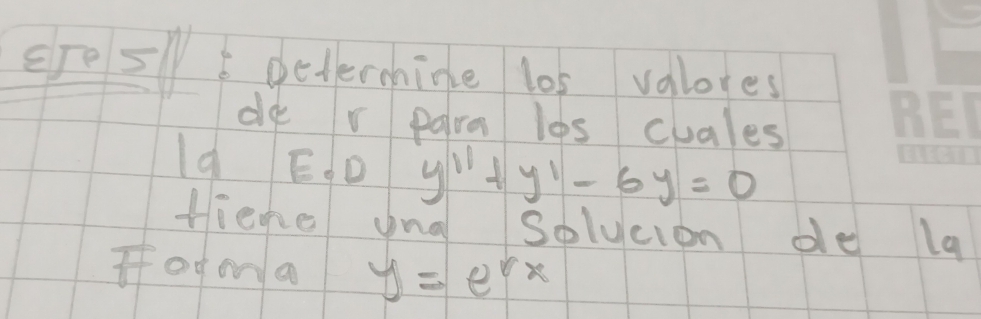 EJe 5 : Determine los valores
de r para los cuales
la E.D y'' + y' - 6y = 0
tiene una Solucion de la
Forma y = e^rx
RED